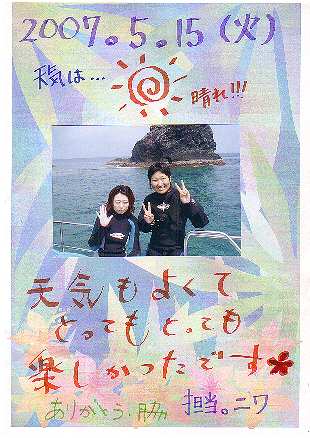 2007。5。15(火)
天気は… 晴れ!!!
天気もよくて
とってもとっても
楽しかったです
ありがとう 脇
担当。ニワ